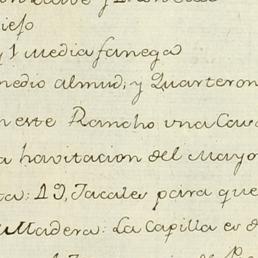 y 1 media fanega
medio almud; y Quarteron
n este Rancho una Cas
a havitacion del Mayo
ta: 19, Jacales para que
Madera: La Capilla es d